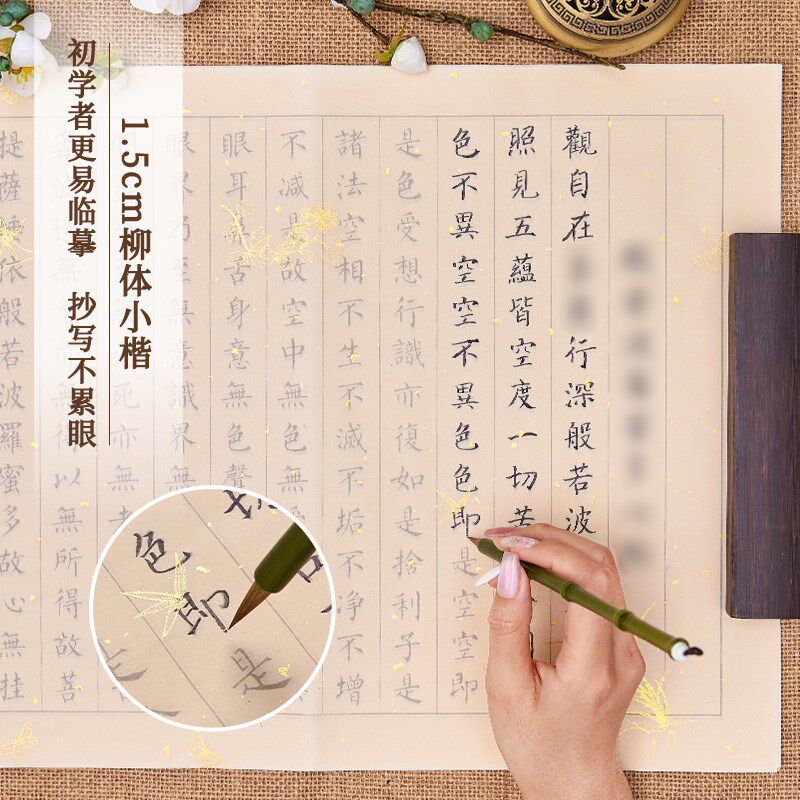 1.5cm柳体小楷
初学者更易临摹 抄写不累眼
觀自在行深般若波
照見五蘊皆空度一切苦
色不異空空不異色色即是空空即
是色受想行識亦復如是捨利子是
諸法空相不生不滅不垢不净不增
不減是故空中無色無
眼耳鼻舌身意無色聲
眼界乃至無意識界無
死亦無老
無得以無所得故菩
提薩埵依般若波羅蜜多故心無挂
色即是